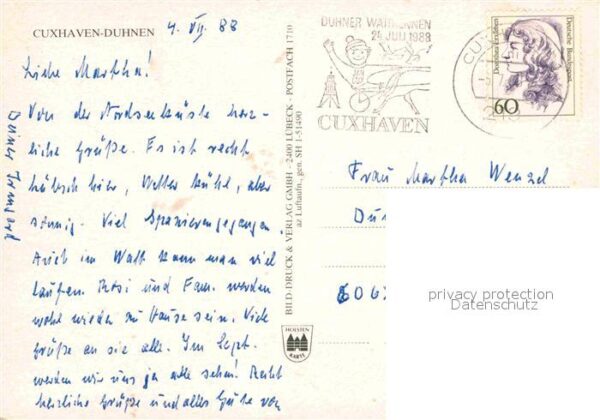 CUXHAVEN-DUHNEN
4. VII. 88
Liebe Martha!
Von der Nordseeküste herz-
liche Grüße. Es ist recht
hübsch hier, Wetter kühl, aber
sonnig. Viel Spazierengegangen.
Auch im Watt kann man viel
laufen. Rosi und Fam. werden
wohl wieder zu Hause sein. Viele
Grüße an sie alle. Im Sept.
werden wir uns ja alle sehen! Recht
herzliche Grüße und alles Gute von
Deiner Irmgard
BILD-DRUCK & VERLAG GMBH · 2400 LÜBECK · POSTFACH 1710
az Luftaufn., gen. SH 1-51490
HOLSTEN
KARTE
DUHNER WATTRENNEN
24. JULI 1988
CUXHAVEN
CUX
Dorothea Erxleben
Deutsche Bundespost
60
Frau Martha Wenzel
privacy protection
Datenschutz